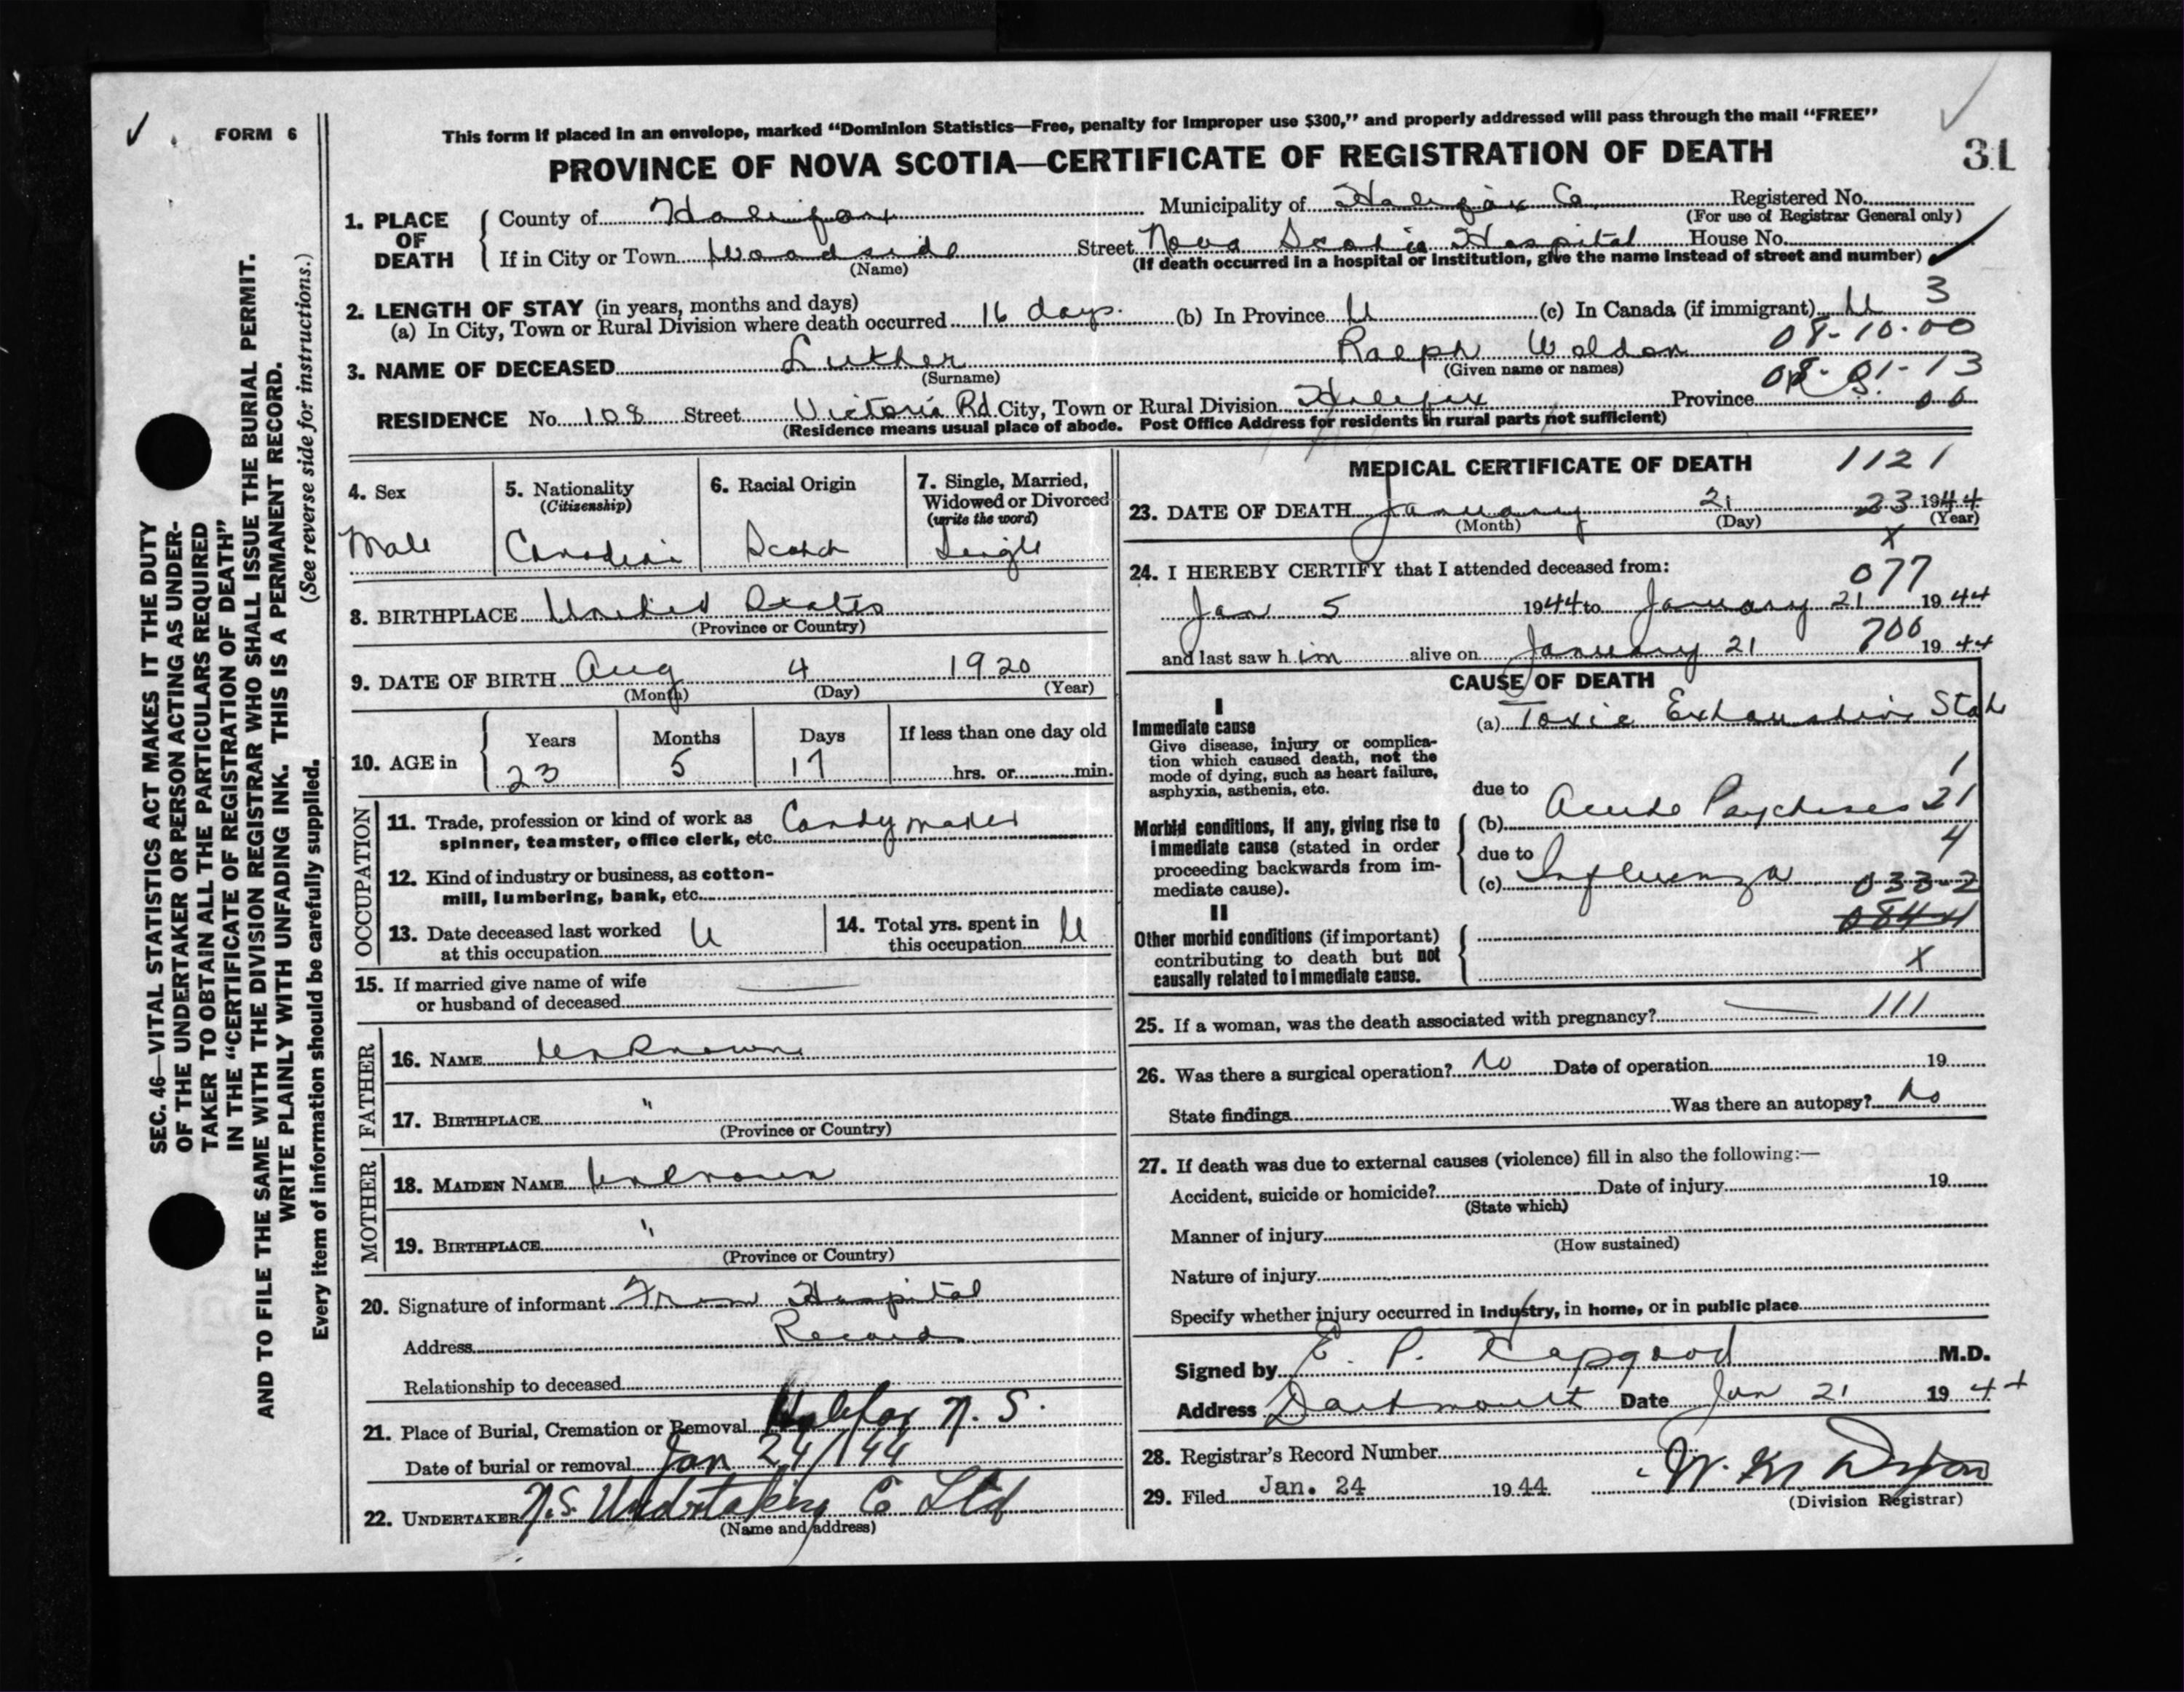 FORM 6
This form if placed in an envelope, marked “Dominion Statistics—Free, penalty for improper use $300,” and properly addressed will pass through the mail “FREE”
PROVINCE OF NOVA SCOTIA—CERTIFICATE OF REGISTRATION OF DEATH
31
SEC. 46—VITAL STATISTICS ACT MAKES IT THE DUTY
OF THE UNDERTAKER OR PERSON ACTING AS UNDER-
TAKER TO OBTAIN ALL THE PARTICULARS REQUIRED
IN THE “CERTIFICATE OF REGISTRATION OF DEATH”
AND TO FILE THE SAME WITH THE DIVISION REGISTRAR WHO SHALL ISSUE THE BURIAL PERMIT.
WRITE PLAINLY WITH UNFADING INK. THIS IS A PERMANENT RECORD.
Every item of information should be carefully supplied. (See reverse side for instructions.)
1. PLACE OF DEATH
County of Halifax Municipality of Halifax Co. Registered No.
(For use of Registrar General only)
If in City or Town Woodside Street Nova Scotia Hospital House No.
(Name) (If death occurred in a hospital or institution, give the name instead of street and number)
2. LENGTH OF STAY (in years, months and days) 3
(a) In City, Town or Rural Division where death occurred 16 days. (b) In Province U (c) In Canada (if immigrant) U
08-10-00
3. NAME OF DECEASED Luther Ralph Waldon
(Surname) (Given name or names)
08-01-13
RESIDENCE No. 108 Street Victoria Rd City, Town or Rural Division Halifax Province
(Residence means usual place of abode. Post Office Address for residents in rural parts not sufficient)
4. Sex
Male
5. Nationality
(Citizenship)
Canadian
6. Racial Origin
Scotch
7. Single, Married,
Widowed or Divorced
(write the word)
Single
8. BIRTHPLACE United States
(Province or Country)
9. DATE OF BIRTH Aug 4 1920
(Month) (Day) (Year)
10. AGE in
Years Months Days If less than one day old
23 5 17 hrs. or min.
OCCUPATION
11. Trade, profession or kind of work as
spinner, teamster, office clerk, etc. Candymaker
12. Kind of industry or business, as cotton-
mill, lumbering, bank, etc.
13. Date deceased last worked
at this occupation U
14. Total yrs. spent in
this occupation U
15. If married give name of wife
or husband of deceased
FATHER
16. NAME Unknown
17. BIRTHPLACE "
(Province or Country)
MOTHER
18. MAIDEN NAME Unknown
19. BIRTHPLACE "
(Province or Country)
20. Signature of informant From Hospital
Address Records
Relationship to deceased
21. Place of Burial, Cremation or Removal Halifax N. S.
Date of burial or removal Jan 24/144
22. UNDERTAKER N.S. Undertaking Co Ltd
(Name and address)
MEDICAL CERTIFICATE OF DEATH 1121
23. DATE OF DEATH January 21 23 1944
(Month) (Day) (Year)
X
24. I HEREBY CERTIFY that I attended deceased from: 077
Jan 5 1944 to January 21 1944
700
and last saw him alive on January 21 1944
CAUSE OF DEATH
I
Immediate cause
Give disease, injury or complica-
tion which caused death, not the
mode of dying, such as heart failure,
asphyxia, asthenia, etc.
(a) Toxic Exhaustive State
1
due to
Morbid conditions, if any, giving rise to
immediate cause (stated in order
proceeding backwards from im-
mediate cause).
(b) Acute Psychoses 21
due to 4
(c) Influenza 033-2
0844
II
Other morbid conditions (if important)
contributing to death but not
causally related to immediate cause.
X
25. If a woman, was the death associated with pregnancy? — 111
26. Was there a surgical operation? No Date of operation 19
State findings Was there an autopsy? No
27. If death was due to external causes (violence) fill in also the following:—
Accident, suicide or homicide? Date of injury 19
(State which)
Manner of injury
(How sustained)
Nature of injury
Specify whether injury occurred in Industry, in home, or in public place
Signed by E. P. Hapgood M.D.
Address Dartmouth Date Jan 21 1944
28. Registrar’s Record Number
29. Filed Jan. 24 1944
(Division Registrar)